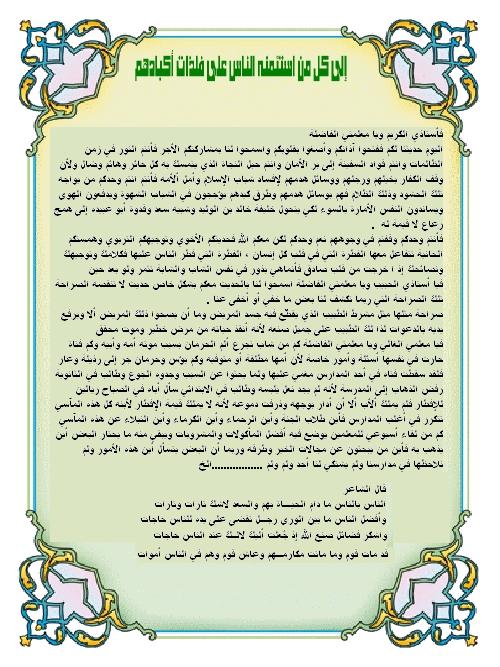 إلى كل من استئمنه الناس على فلذات أكبادهم
فأستاذي الكريم ويا معلمتي الفاضلة
اليوم حديثنا لكم فافتحوا آذانكم وأصغوا بقلوبكم واسمحوا لنا بمشاركتكم الأجر فأنتم النور في زمن
الظلمات وانتم قواد السفينة إلى بر الأمان وانتم حبل النجاة الذي يتمسك به كل حائر وهائم وضال ولأن
وقف الكفار بخيلهم ورجلهم ووسائل هدمهم لإفساد شباب الإسلام وأمل الأمة فأنتم انتم وحدكم من يواجه
تلك الحشود وذلك الظلام فهم بوسائل هدمهم وطرق كيدهم يؤججون في الشباب الشهوة ويدفعون الهوى
ويساندون النفس الأمارة بالسوء لكي يتحول خليفة خالد بن الوليد وشبيه سعد وقدوة أبو عبيده إلى همج
رعاع لا قيمة له .
فأنتم وحدكم وقفتم في وجوههم نعم وحدكم لكن معكم الله فحديثكم الأخوي وتوجيهكم التربوي وهمستكم
الحانية تتفاعل معها الفطرة التي في قلب كل إنسان ، الفطرة التي فطر الناس عليها فكلامك وتوجيهك
ونصائحك إذا خرجت من قلب صادق فأنما هي بذور في نفس الشاب والشابة تثمر ولو بعد حين
فيا أستاذي الحبيب ويا معلمتي الفاضلة اسمحوا لنا بالحديث معكم بشكل خاص حديث لا تنقصه الصراحة
تلك الصراحة التي ربما تكشف لنا بعض ما خفي أو أخفي عنا .
صراحة مثلها مثل مشرط الطبيب الذي يقطع فيه جسد المريض وما أن يصحوا ذلك المريض ألا ويرفع
يديه بالدعوات لذا لك الطبيب على جميل صنعه لأنه أنقذ حياته من مرض خطير وموت محقق
فيا معلمي الغالي ويا معلمتي الفاضلة كم من شاب تجرع ألم الحرمان بسبب موت أمه وأبيه وكم فتاة
حارت في نفسها أسئلة وأمور خاصة لأن أمها مطلقة أو متوفية وكم بؤس وحرمان جر إلى رذيلة وعار
فلقد سقطت فتاه في أحد المدارس مغمى عليها ولما بحثوا عن السبب وجدوه الجوع وطالب في الثانوية
رفض الذهاب إلى المدرسة لأنه لم يجد نعل يلبسه وطالب في الابتدائي سأل أباه في الصباح ريالين
للإفطار فلم يملك الأب ألا أن أدار بوجهه وذرفت دموعه لأنه لا يملك قيمة الإفطار لأبنه كل هذه المآسي
تتكرر في أغلب المدارس فأين طلاب الجنة وأين الرحماء وأين الكرماء وأين النبلاء عن هذه المآسي
كم من لقاء أسبوعي للمعلمين يوضع فيه أفضل المأكولات والمشروبات ويبقى منه ما يحتار البعض أين
يذهب به فأين من يبحثون عن مجالات الخير وطرقه وربما أن البعض يتسأل أين هذه الأمور ولم
نلاحظها في مدارسنا ولم يشتكي لنا أحد ولم ولم .................الخ
قال الشاعر
الناس بالناس ما دام الحيــاة بهم والسعد لاشك تارات وتارات
وأفضل الناس ما بين الورى رجـل تقضى على يده للناس حاجات
واشكر فضائل صنع الله إذ جُعلت أليك لالـك عند الناس حاجات
قد مات قوم وما ماتت مكارمـهم وعاش قوم وهم في الناس أموات